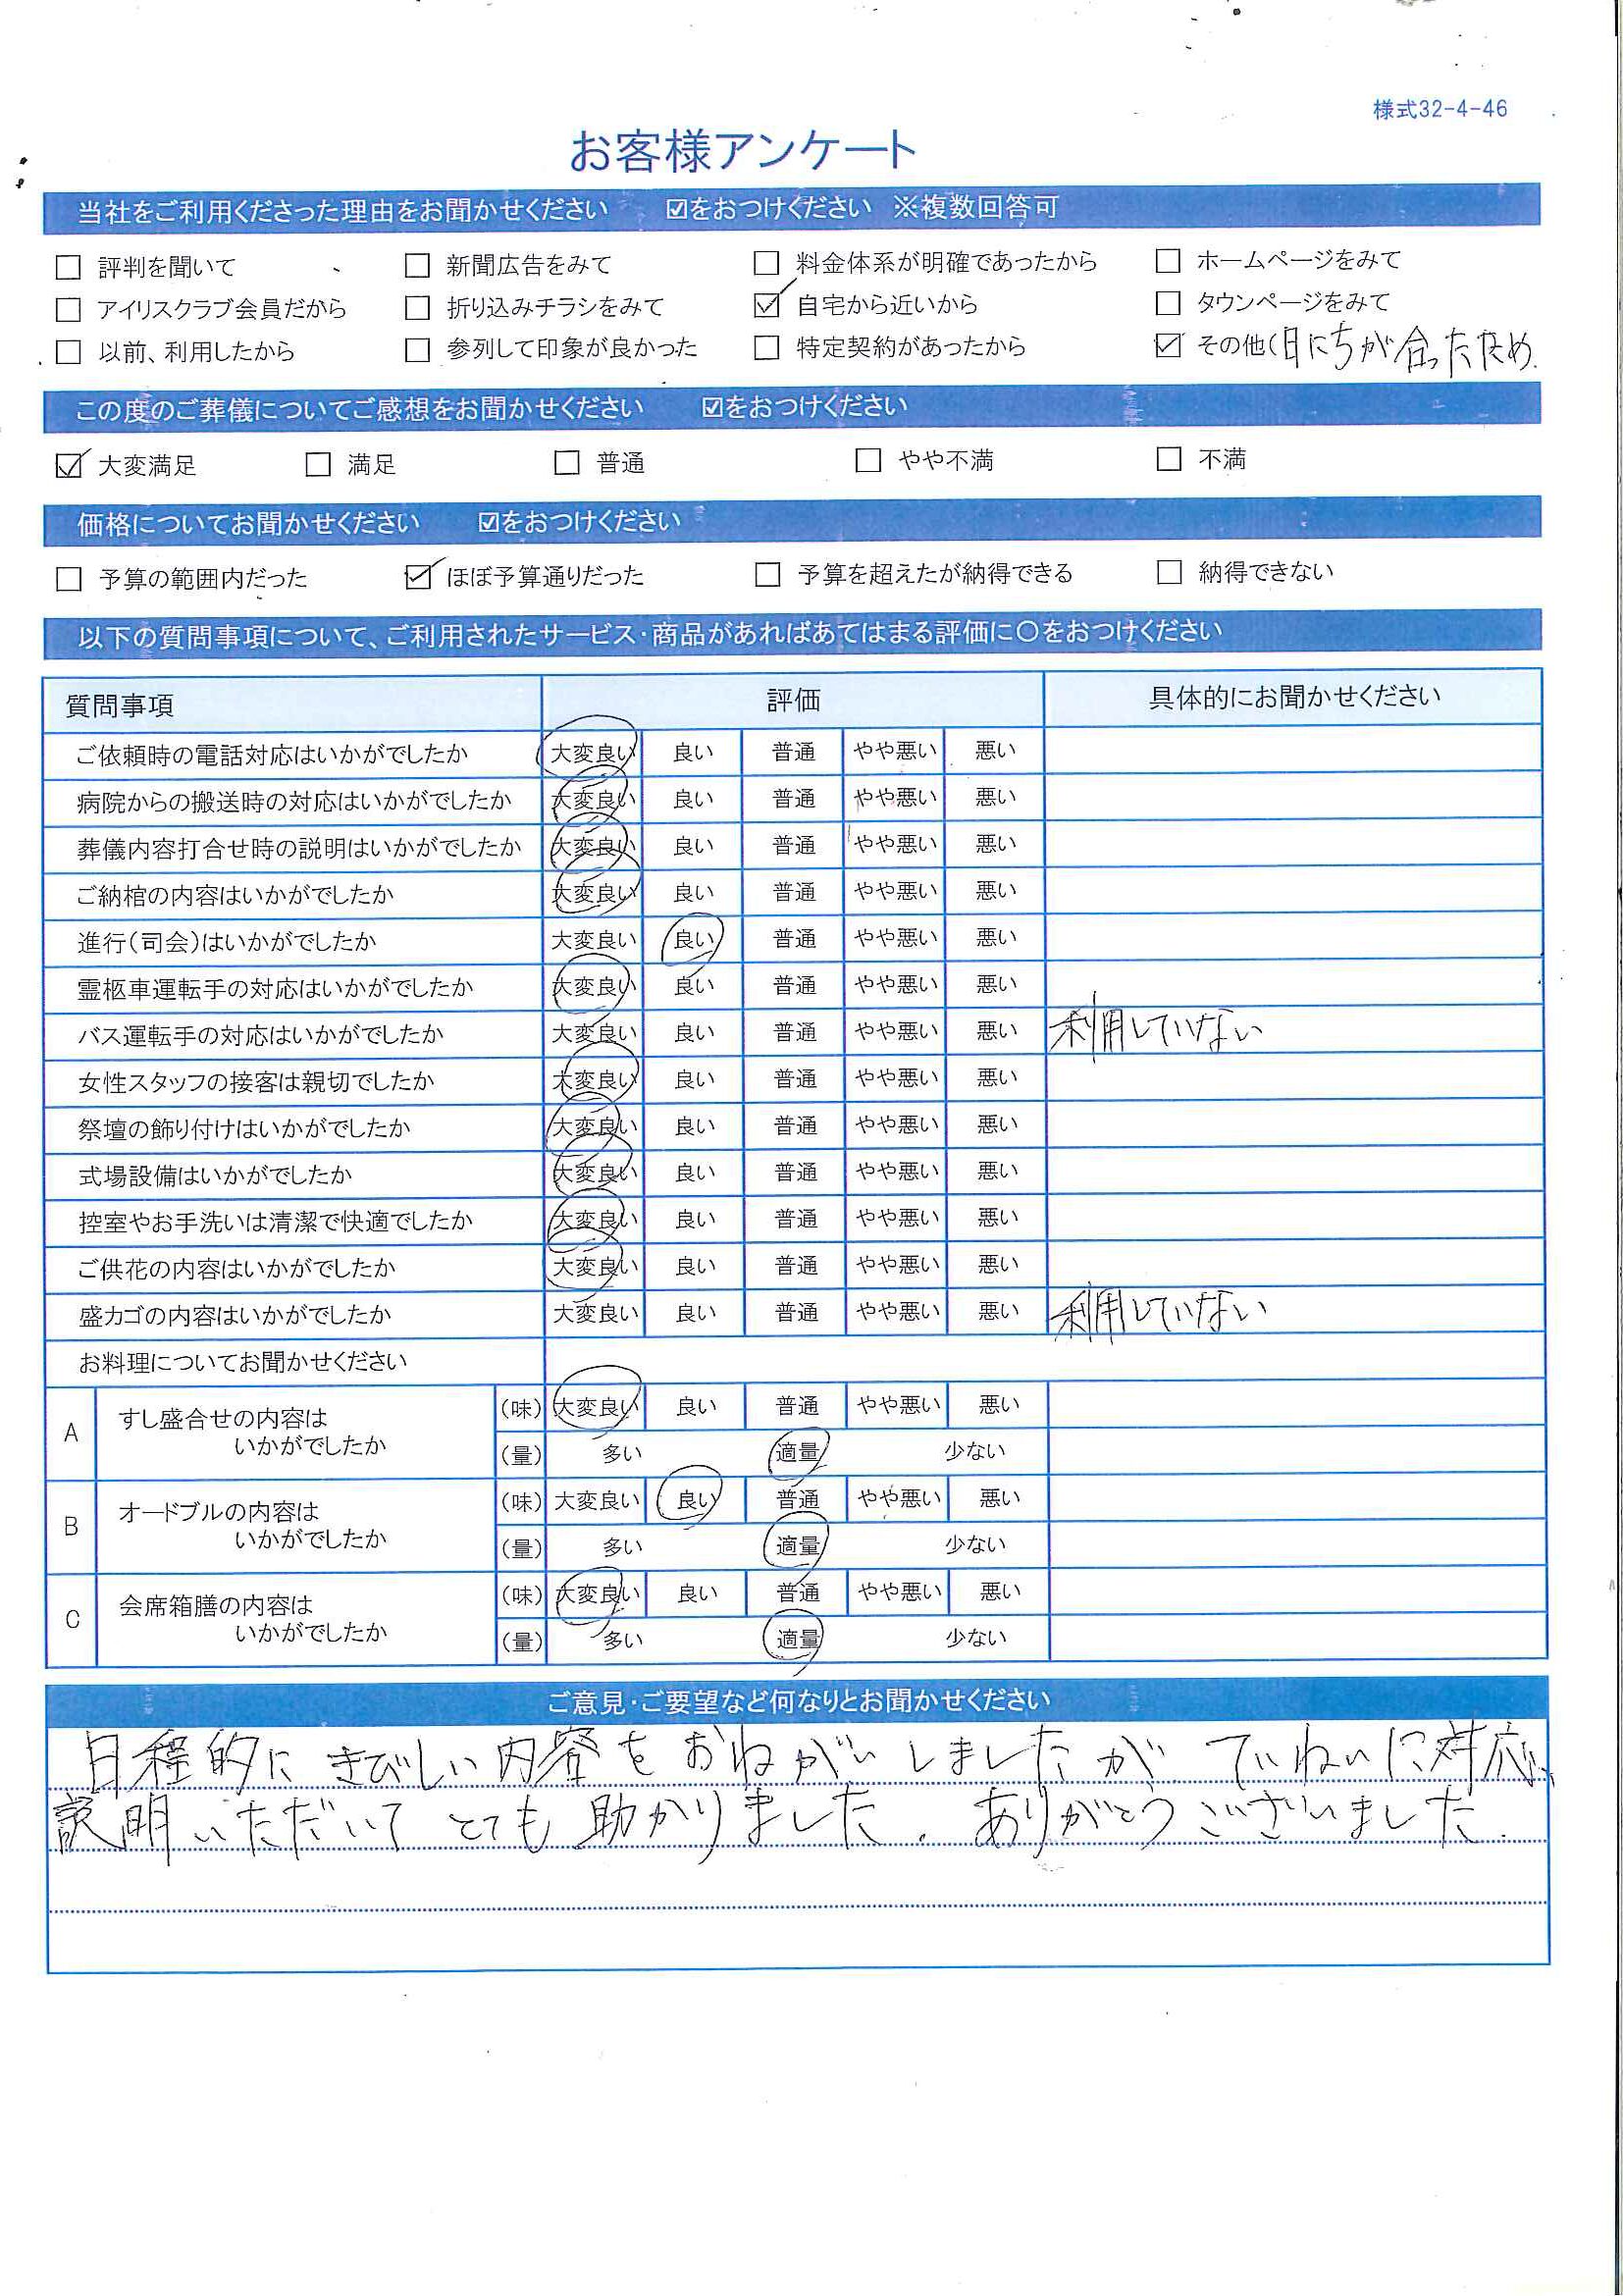 様式32-4-46
お客様アンケート
当社をご利用くださった理由をお聞かせください ☑をおつけください ※複数回答可
□ 評判を聞いて □ 新聞広告をみて □ 料金体系が明確であったから □ ホームページをみて
□ アイリスクラブ会員だから □ 折り込みチラシをみて ☑ 自宅から近いから □ タウンページをみて
□ 以前、利用したから □ 参列して印象が良かった □ 特定契約があったから ☑ その他(日にちが合ったため.
この度のご葬儀についてご感想をお聞かせください ☑をおつけください
☑ 大変満足 □ 満足 □ 普通 □ やや不満 □ 不満
価格についてお聞かせください ☑をおつけください
□ 予算の範囲内だった ☑ ほぼ予算通りだった □ 予算を超えたが納得できる □ 納得できない
以下の質問事項について、ご利用されたサービス・商品があればあてはまる評価に〇をおつけください
質問事項 評価 具体的にお聞かせください
ご依頼時の電話対応はいかがでしたか 大変良い 良い 普通 やや悪い 悪い
病院からの搬送時の対応はいかがでしたか 大変良い 良い 普通 やや悪い 悪い
葬儀内容打合せ時の説明はいかがでしたか 大変良い 良い 普通 やや悪い 悪い
ご納棺の内容はいかがでしたか 大変良い 良い 普通 やや悪い 悪い
進行(司会)はいかがでしたか 大変良い 良い 普通 やや悪い 悪い
霊柩車運転手の対応はいかがでしたか 大変良い 良い 普通 やや悪い 悪い
バス運転手の対応はいかがでしたか 大変良い 良い 普通 やや悪い 悪い 利用していない
女性スタッフの接客は親切でしたか 大変良い 良い 普通 やや悪い 悪い
祭壇の飾り付けはいかがでしたか 大変良い 良い 普通 やや悪い 悪い
式場設備はいかがでしたか 大変良い 良い 普通 やや悪い 悪い
控室やお手洗いは清潔で快適でしたか 大変良い 良い 普通 やや悪い 悪い
ご供花の内容はいかがでしたか 大変良い 良い 普通 やや悪い 悪い
盛カゴの内容はいかがでしたか 大変良い 良い 普通 やや悪い 悪い 利用していない
お料理についてお聞かせください
A すし盛合せの内容は (味) 大変良い 良い 普通 やや悪い 悪い
いかがでしたか (量) 多い 適量 少ない
B オードブルの内容は (味) 大変良い 良い 普通 やや悪い 悪い
いかがでしたか (量) 多い 適量 少ない
C 会席箱膳の内容は (味) 大変良い 良い 普通 やや悪い 悪い
いかがでしたか (量) 多い 適量 少ない
ご意見・ご要望など何なりとお聞かせください
日程的にきびしい内容をおねがいしましたが ていねいに対応、
説明いただいて とても助かりました. ありがとうございました.